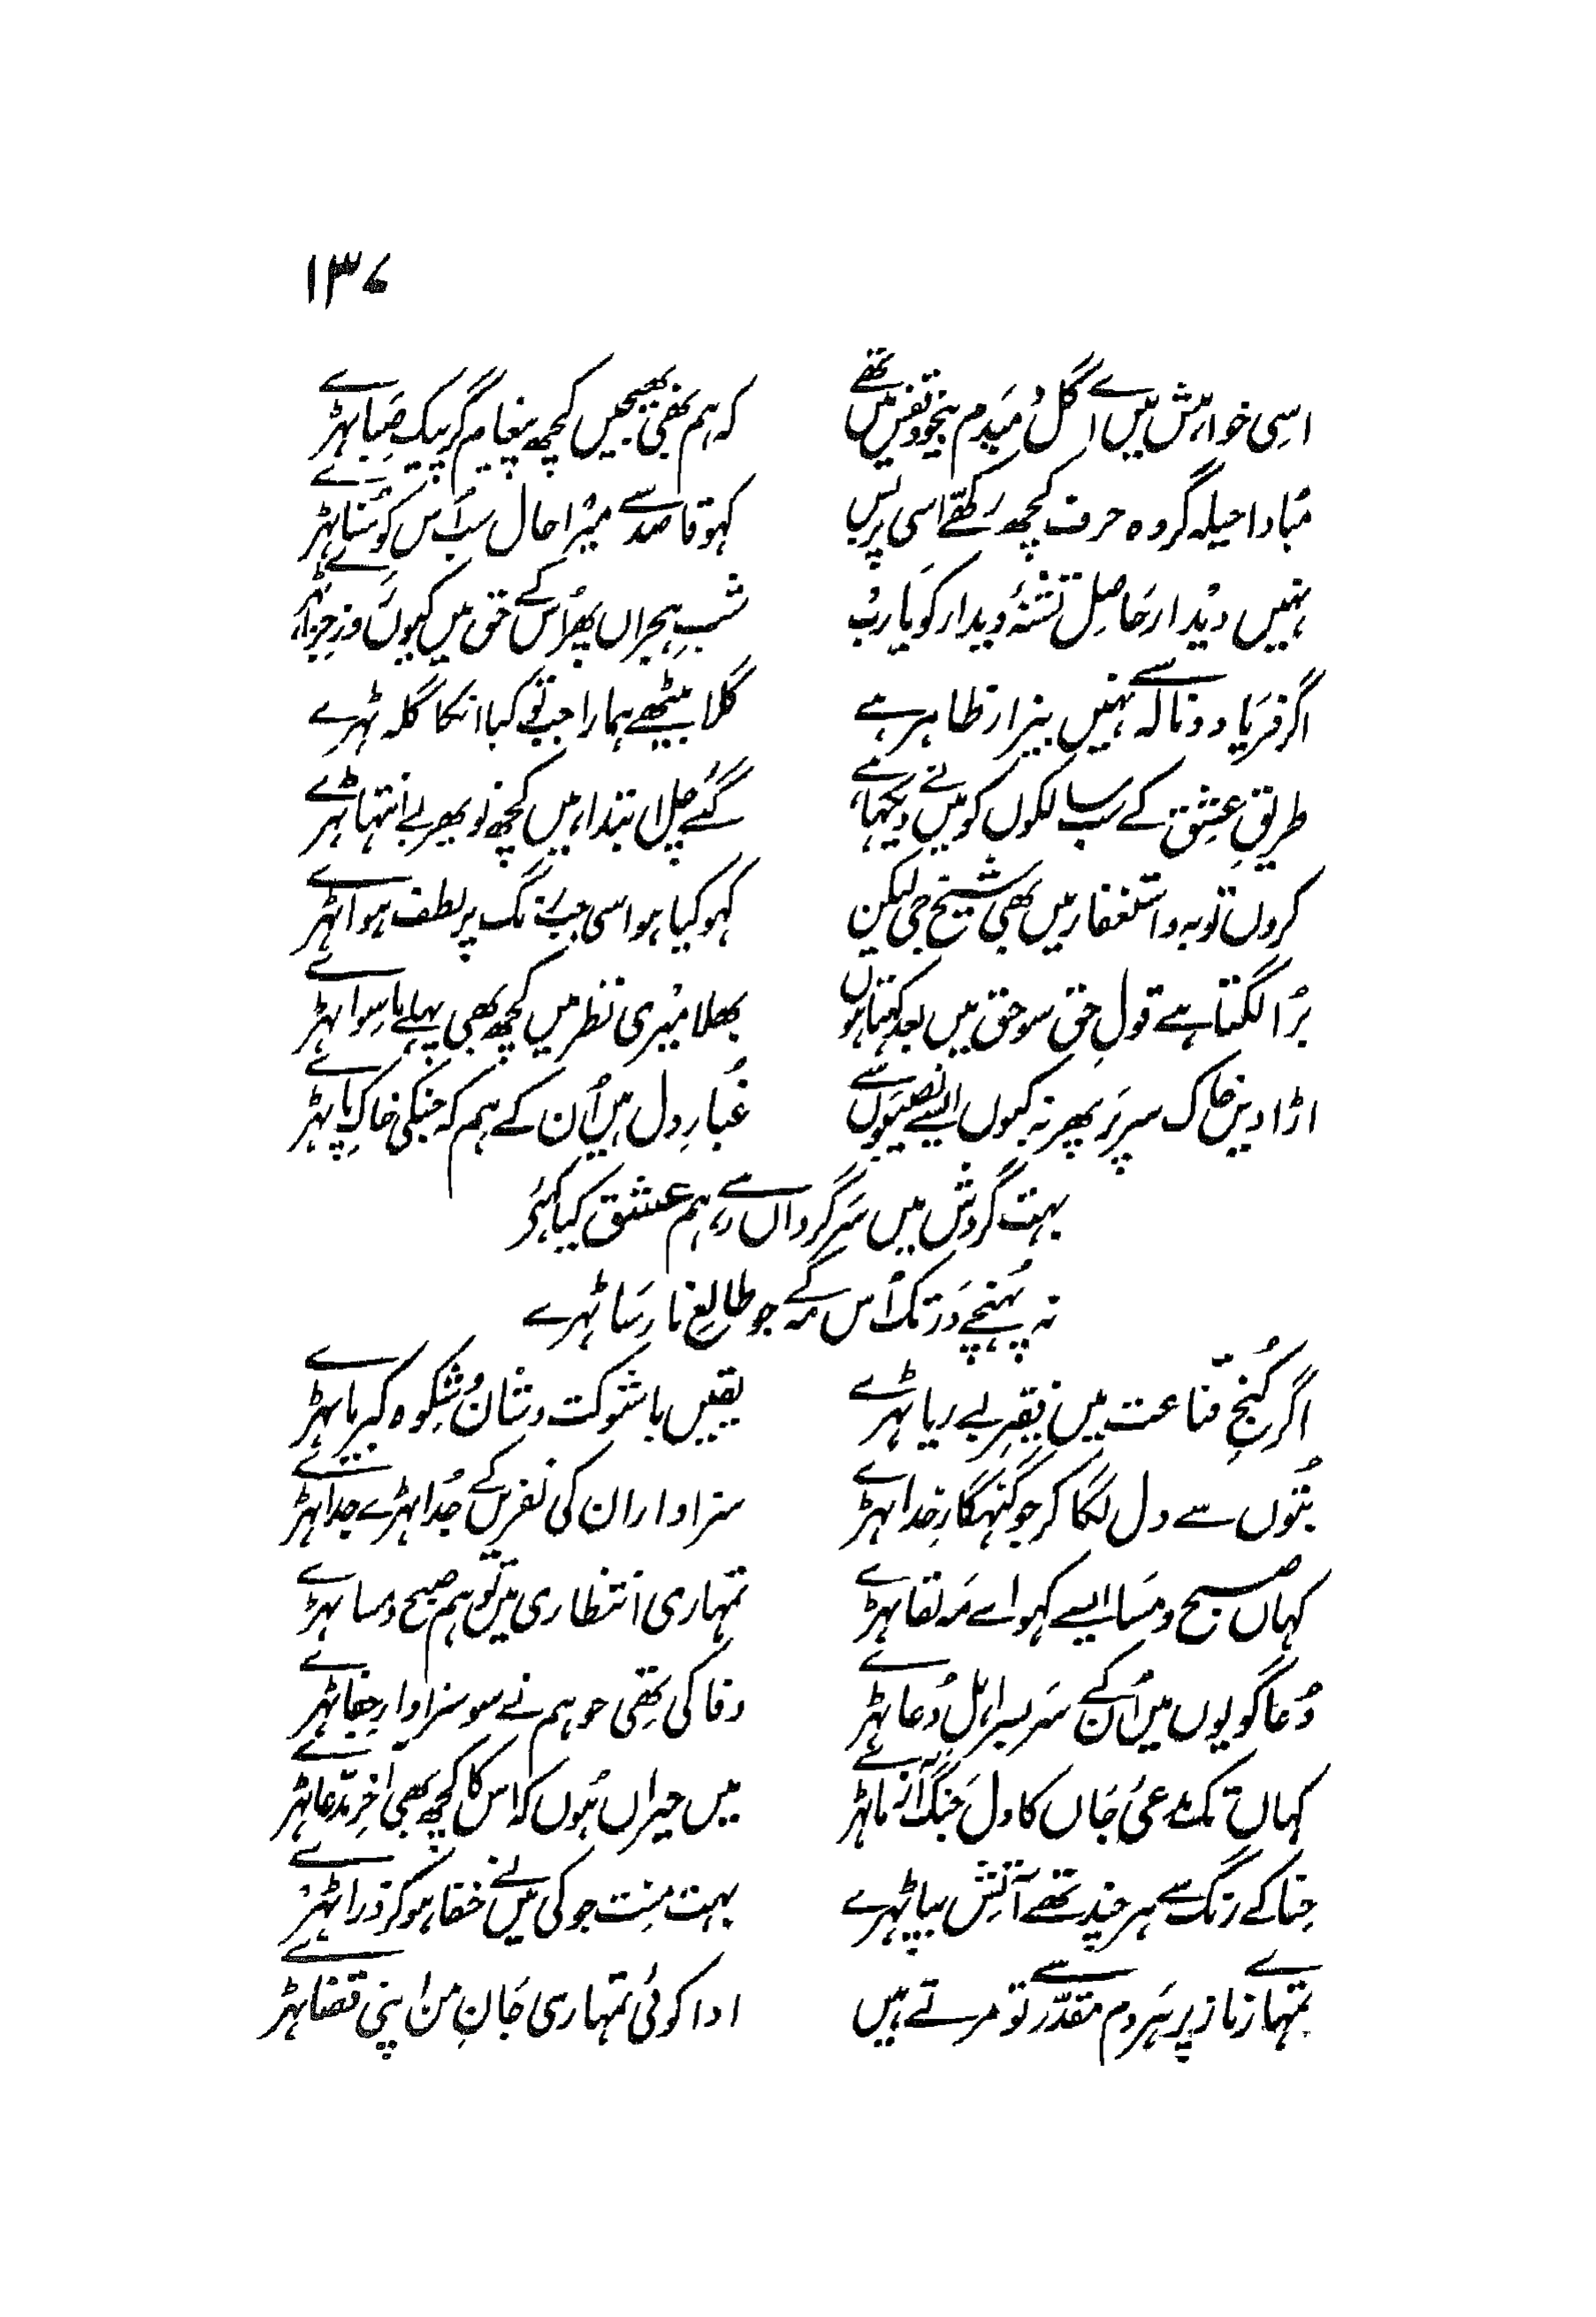 ۱۳۷
اسی خواہش میں اے گل دمبدم بیخود قفس میں تھے
کہ ہم بھی بھیجیں کچھ پیغام گر پیک صَبا ٹہرے
مُبادا حیلہ گر وہ حرف کچھ رکھے اسی پر بس
کہو قاصد سے میرا حال سب اُس کو سُنا ٹہرے
نہیں دیدار حَاصِل تشنۂ دیدار کو یَا رب
شبِ ہجراں پھر اُس کے حق میں کیوں روزِ جزا ٹہرے
اگر فریَاد و نالہ سے نہیں بیزار ظاہر ہے
گلا بیٹھے ہمارا جب تو کیا انکا گلہ ٹہرے
طریقِ عشِق کے سب سالکوں کو میں نے دیکھا ہے
گئے چل ابتدا میں کچھ تو پھر بے انتہا ٹہرے
کروں توبہ و استغفار میں بھی شیخ جی لیکن
کہو کیا ہو اسی جب رنگ پر لطف ہوا ٹہرے
بُرا لگتا ہے قولِ حق سو حق میں بعد کہتا ہوں
بھلا میری نظر میں کچھ بھی پہلے ماسِوا ٹہرے
اڑا دیں خاک سر پَر پھر نہ کیوں ایسے نصیبوں سے
غُبارِ دل ہیں اُن کے ہم کہ جنکی خاکِ پا ٹہرے
بہت گردش میں سَر گرداں رہے ہم عشق کیا کہئے
نہ پُہنچے دَر تک اُس مہ کے جو طالعِ نا رسَا ٹہرے
اگر کُنجِ قنّاعت میں فقِر بے ریا ٹہرے
یقیں با شوکت و شانُ شِکوہ کبریا ٹہرے
بُتوں سے دل لگا کر جو گنہگارِ خدا ٹہرے
سزاوار ان کی نفریں کے جُدا ٹہرے جدا ٹہرے
کہاں صبح و مسَا ایسے کہو اے مَہ لقا ٹہرے
تمہاری انتظاری میں تو ہم صبح و مسا ٹہرے
دُعا گویوں میں اُن کے سَر بسر اہل دُعا ٹہرے
وفا کی تھی جو ہم نے سو سزاوارِ جفا ٹہرے
کہاں تک مدعئ جَاں کا دل جَنگ آزما ٹہرے
میں حیراں ہُوں کہ اس کا کچھ بھی آخر مدّعا ٹہرے
حِنا کے رنگ سے ہر چند تھے آتِش بپا ٹہرے
بہت مِنت جو کی میں نے خفا ہو کر ذرا ٹہرے
تمہارے ناز پر ہَر دم مقدّر سے تو مرتے ہیں
ادا کوئی تمہاری جَانِ من اپنی قضا ٹہرے